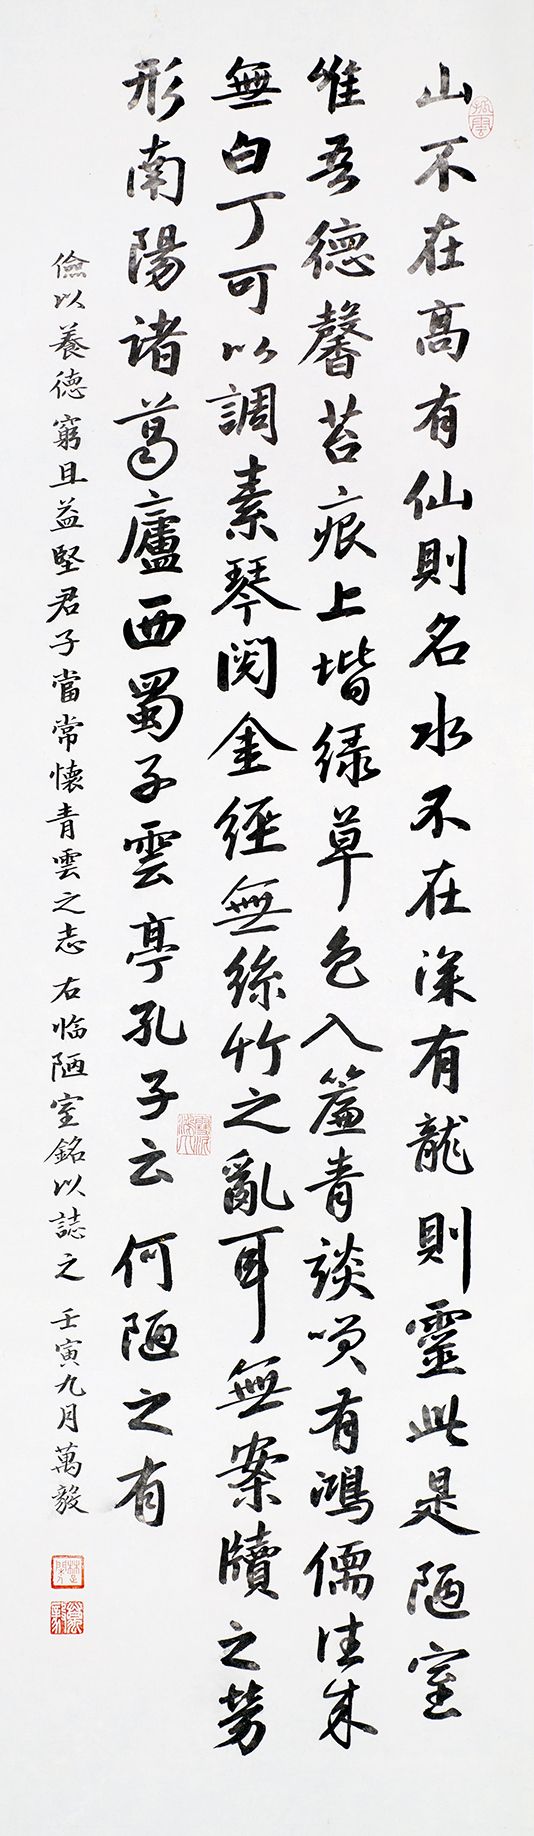 山不在高有仙則名水不在深有龍則靈此是陋室
唯吾德馨苔痕上堦緑草色入簾青談笑有鴻儒往来
無白丁可以調素琴閲金經無絲竹之亂耳無案牘之劳
形南陽诸葛廬西蜀子雲亭孔子云何陋之有
儉以養德窮且益堅君子當常懷青雲之志 右临陋室銘以誌之 壬寅九月萬毅